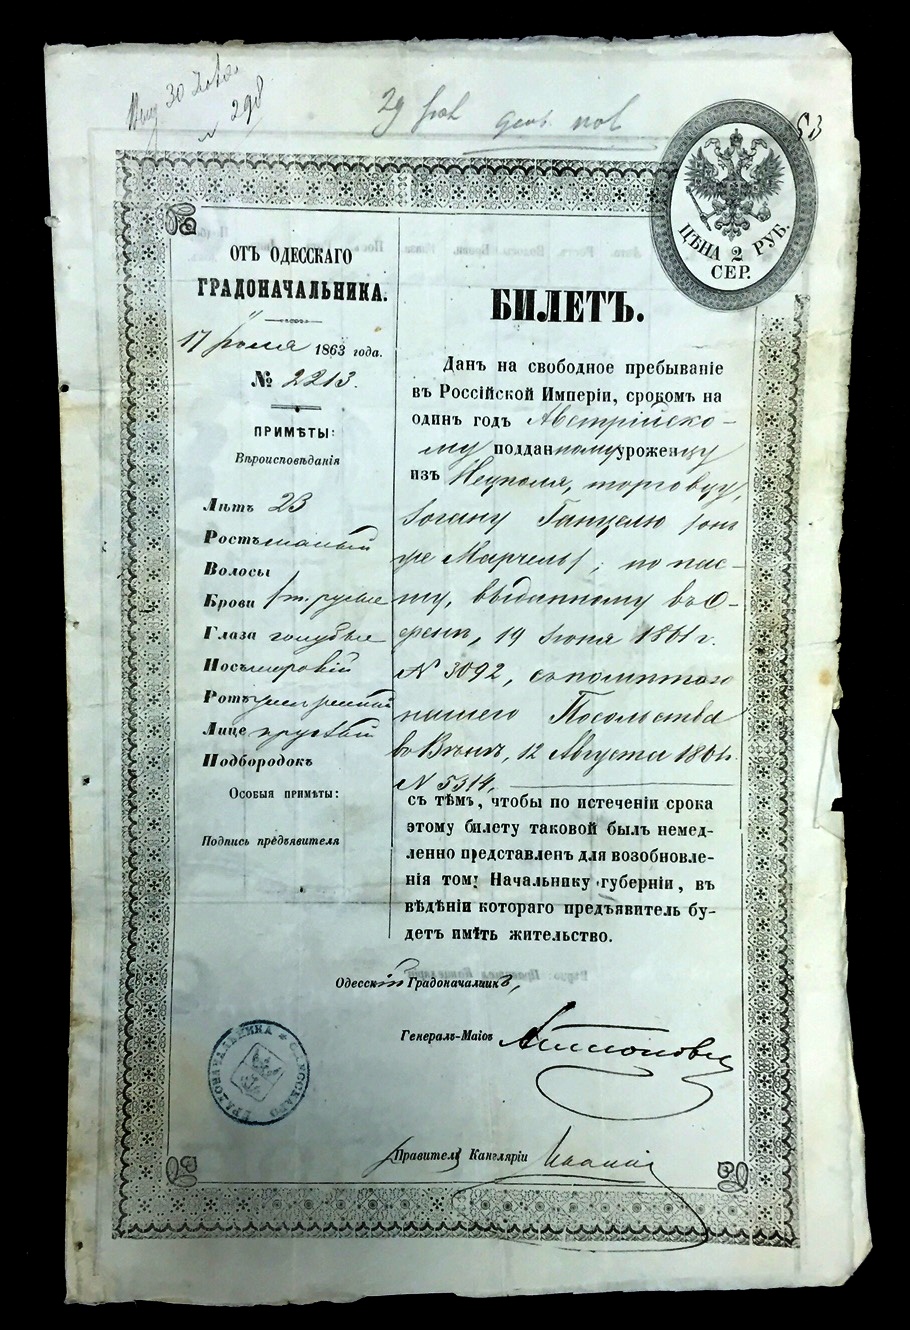 30
№ 298
29
53
ЦѢНА 2 РУБ.
СЕР.
ОТЪ ОДЕССКАГО
ГРАДОНАЧАЛЬНИКА.
17 Іюля 1863 года.
№ 2213.
ПРИМѢТЫ:
Вѣроисповѣданія
Лѣтъ 23
Ростъ малый
Волосы
Брови т. русые
Глаза голубые
Носъ широкій
Ротъ умѣренный
Лице круглый
Подбородокъ
Особыя примѣты:
Подпись предъявителя
БИЛЕТЪ.
Данъ на свободное пребываніе
въ Россійской Имперіи, срокомъ на
одинъ годъ Австрійско-
му подданному уроженцу
изъ торговцу,
Іогану Ганцелю (онъ
же Марчелъ), по пас-
ту, выданному въ О-
19 Іюня 1861 г.
№ 3092,
нашего Посольства
въ Вѣнѣ, 12 Августа 1861
№ 5314,
съ тѣмъ, чтобы по истеченіи срока
этому билету таковой былъ немед-
ленно представленъ для возобновле-
нія тому Начальнику губерніи, въ
вѣдѣніи котораго предъявитель бу-
детъ имѣть жительство.
Одесскій Градоначалникъ,
Генералъ-Маіоръ
Правитель Канцеляріи
ОДЕССКАГО ГРАДОНАЧАЛЬНИКА